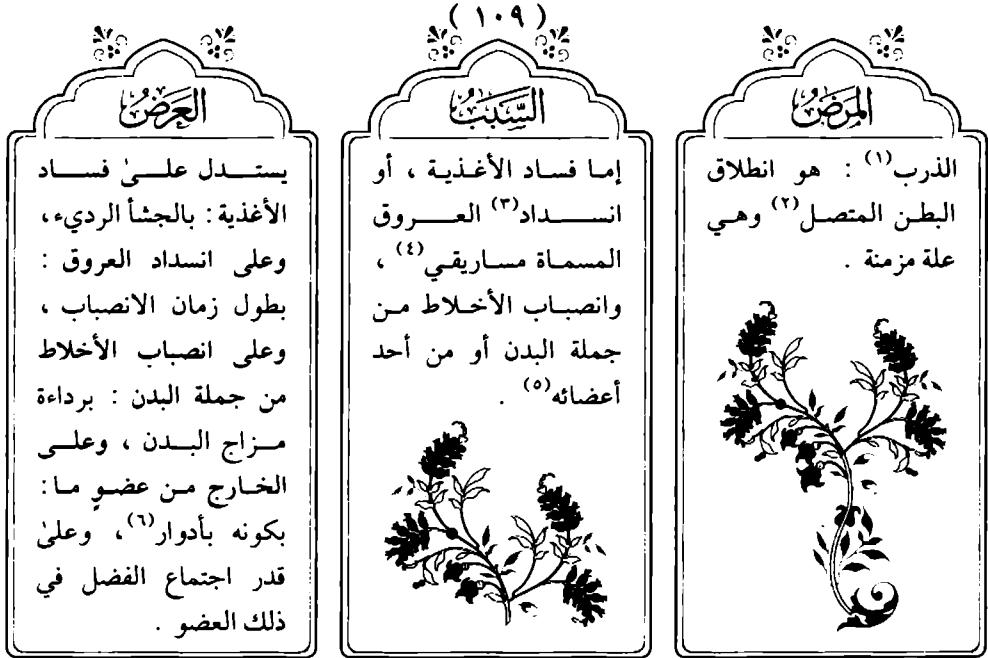 ( ١٠٩ )
المَرَضُ
الذرب(١) : هو انطلاق
البطن المتصل(٢) وهي
علة مزمنة .
السَّبَبُ
إما فساد الأغذية ، أو
انسداد(٣) العروق
المسماة مساريقي(٤) ،
وانصباب الأخلاط من
جملة البدن أو من أحد
أعضائه(٥) .
العَرَضُ
يستدل علىٰ فساد
الأغذية : بالجشأ الرديء،
وعلى انسداد العروق :
بطول زمان الانصباب ،
وعلى انصباب الأخلاط
من جملة البدن : برداءة
مزاج البدن ، وعلى
الخارج من عضوٍ ما :
بكونه بأدوار(٦)، وعلىٰ
قدر اجتماع الفضل في
ذلك العضو .